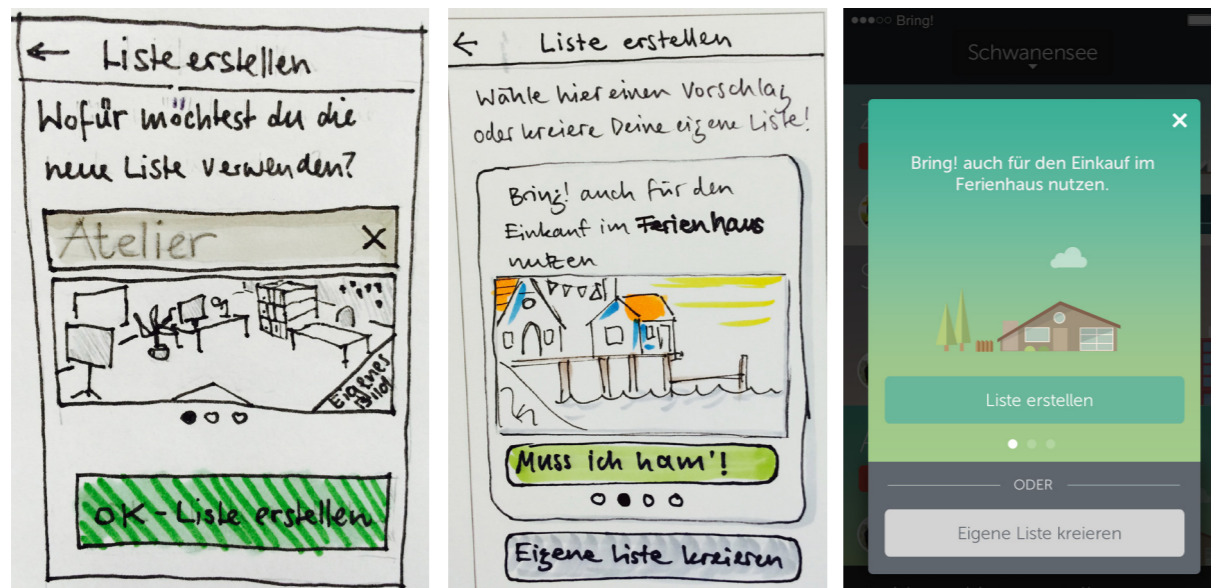 ← Liste erstellen
Wofür möchtest du die
neue Liste verwenden?
Atelier X
Eigenes
Bild
OK - Liste erstellen
← Liste erstellen
Wähle hier einen Vorschlag
oder kreiere Deine eigene Liste!
Bring! auch für den
Einkauf im Ferienhaus
nutzen
Muss ich ham'!
Eigene Liste kreieren
Bring!
Schwanensee
Bring! auch für den Einkauf im
Ferienhaus nutzen.
Liste erstellen
ODER
Eigene Liste kreieren